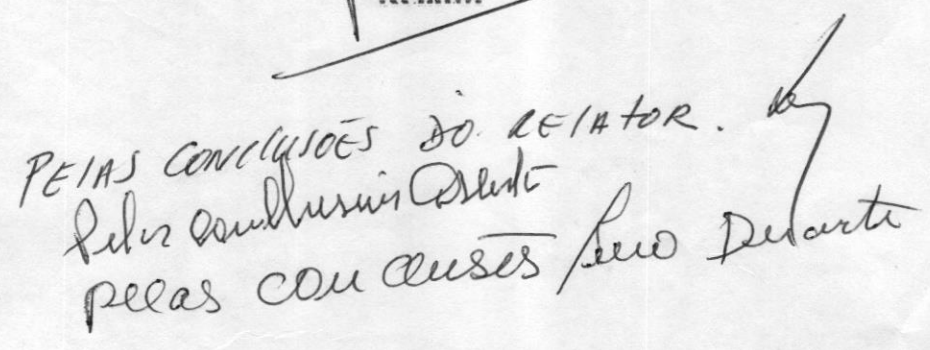 PELAS CONCLUSÕES DO RELATOR.
Pelas conclusões
pelas conclusões Duarte